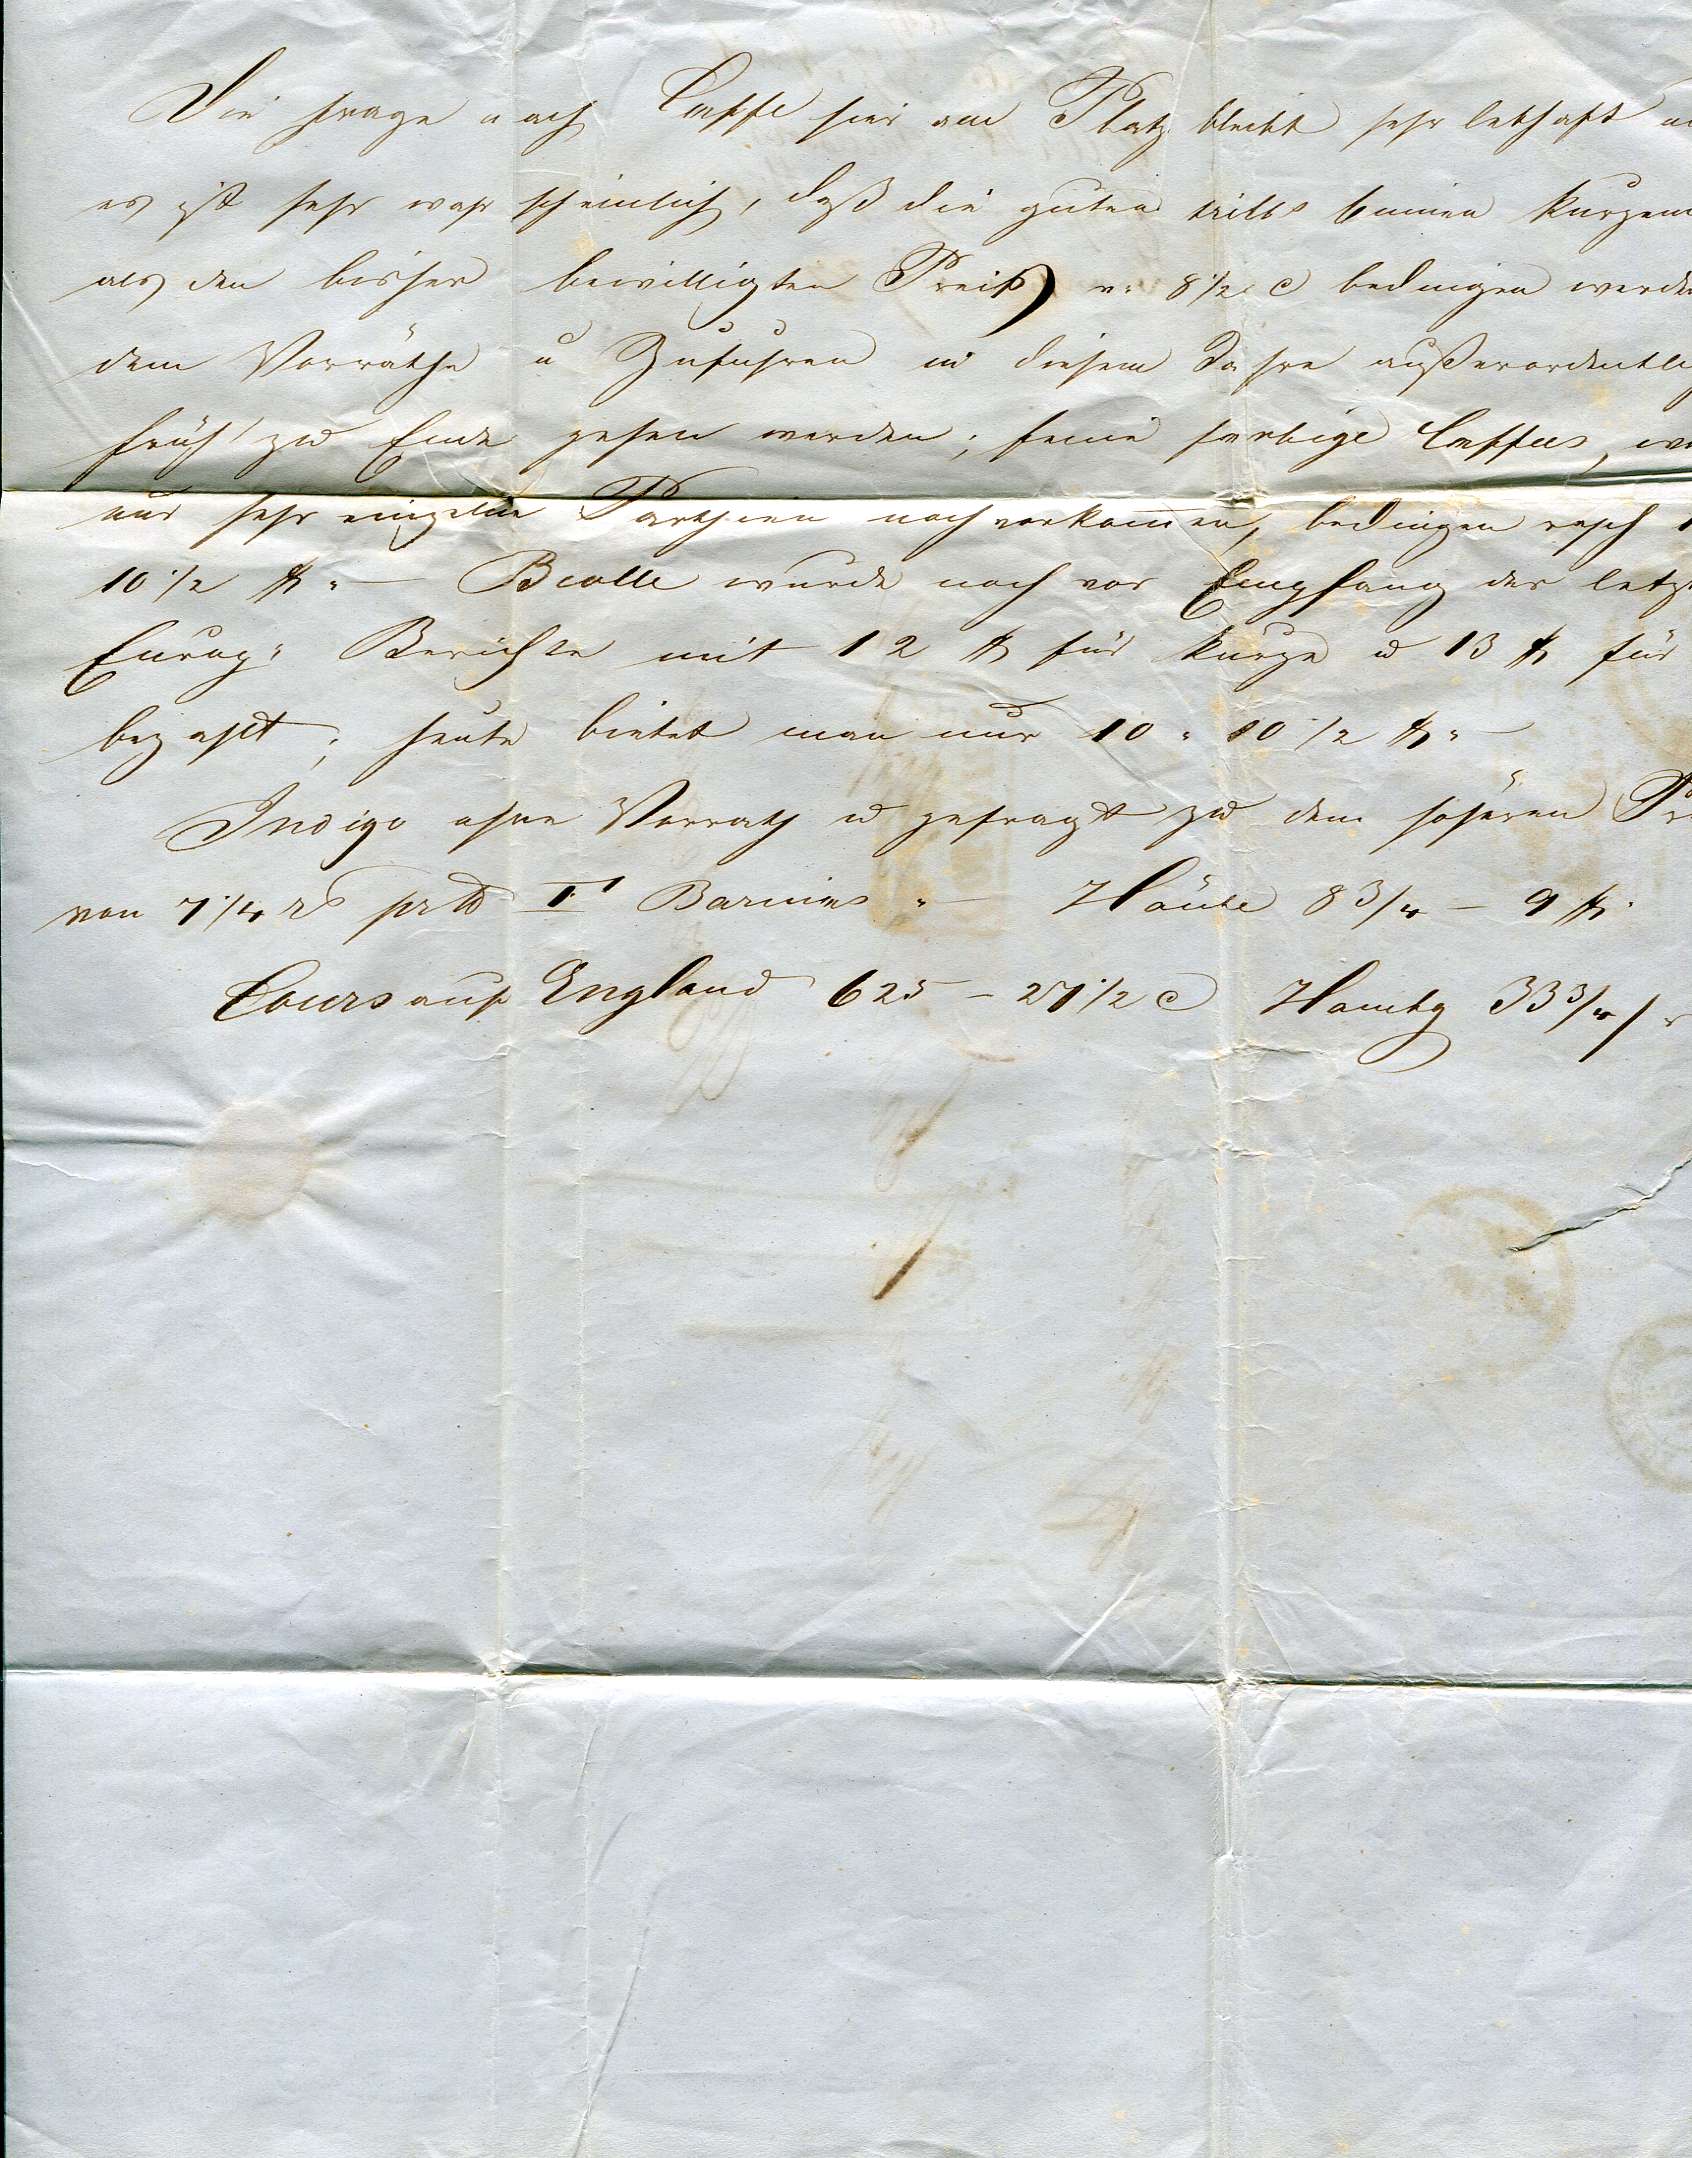 Die Frage nach Caffe hier am Platz bleibt sehr lebhaft
es ist sehr wahrscheinlich, daß die guten binnen kurzem
als den bisher bewilligten Preiß v: 8 1/2 c bedingen werden
dem Vorräthe u Zufuhren in diesem Jahre außerordentlich
früh zu Ende gehen werden; feine farbige Caffees,
nur sehr einzelne Parthien noch vorkomen, bedingen rasch
10 1/2 $ .— Bwolle wurde noch vor Empfang der letzt
Europ: Berichte mit 12 $ für kurze u 13 $ für
bezahlt; heute bietet man nur 10 . 10 1/2 $ .—
Indigo ohne Vorrath u gefragt zu dem höheren
von 7 1/4 rs pr lb Barinas .— Häute 8 3/4 — 9 $.
Cours auf England 625 — 27 1/2 c Hambg 33 3/4